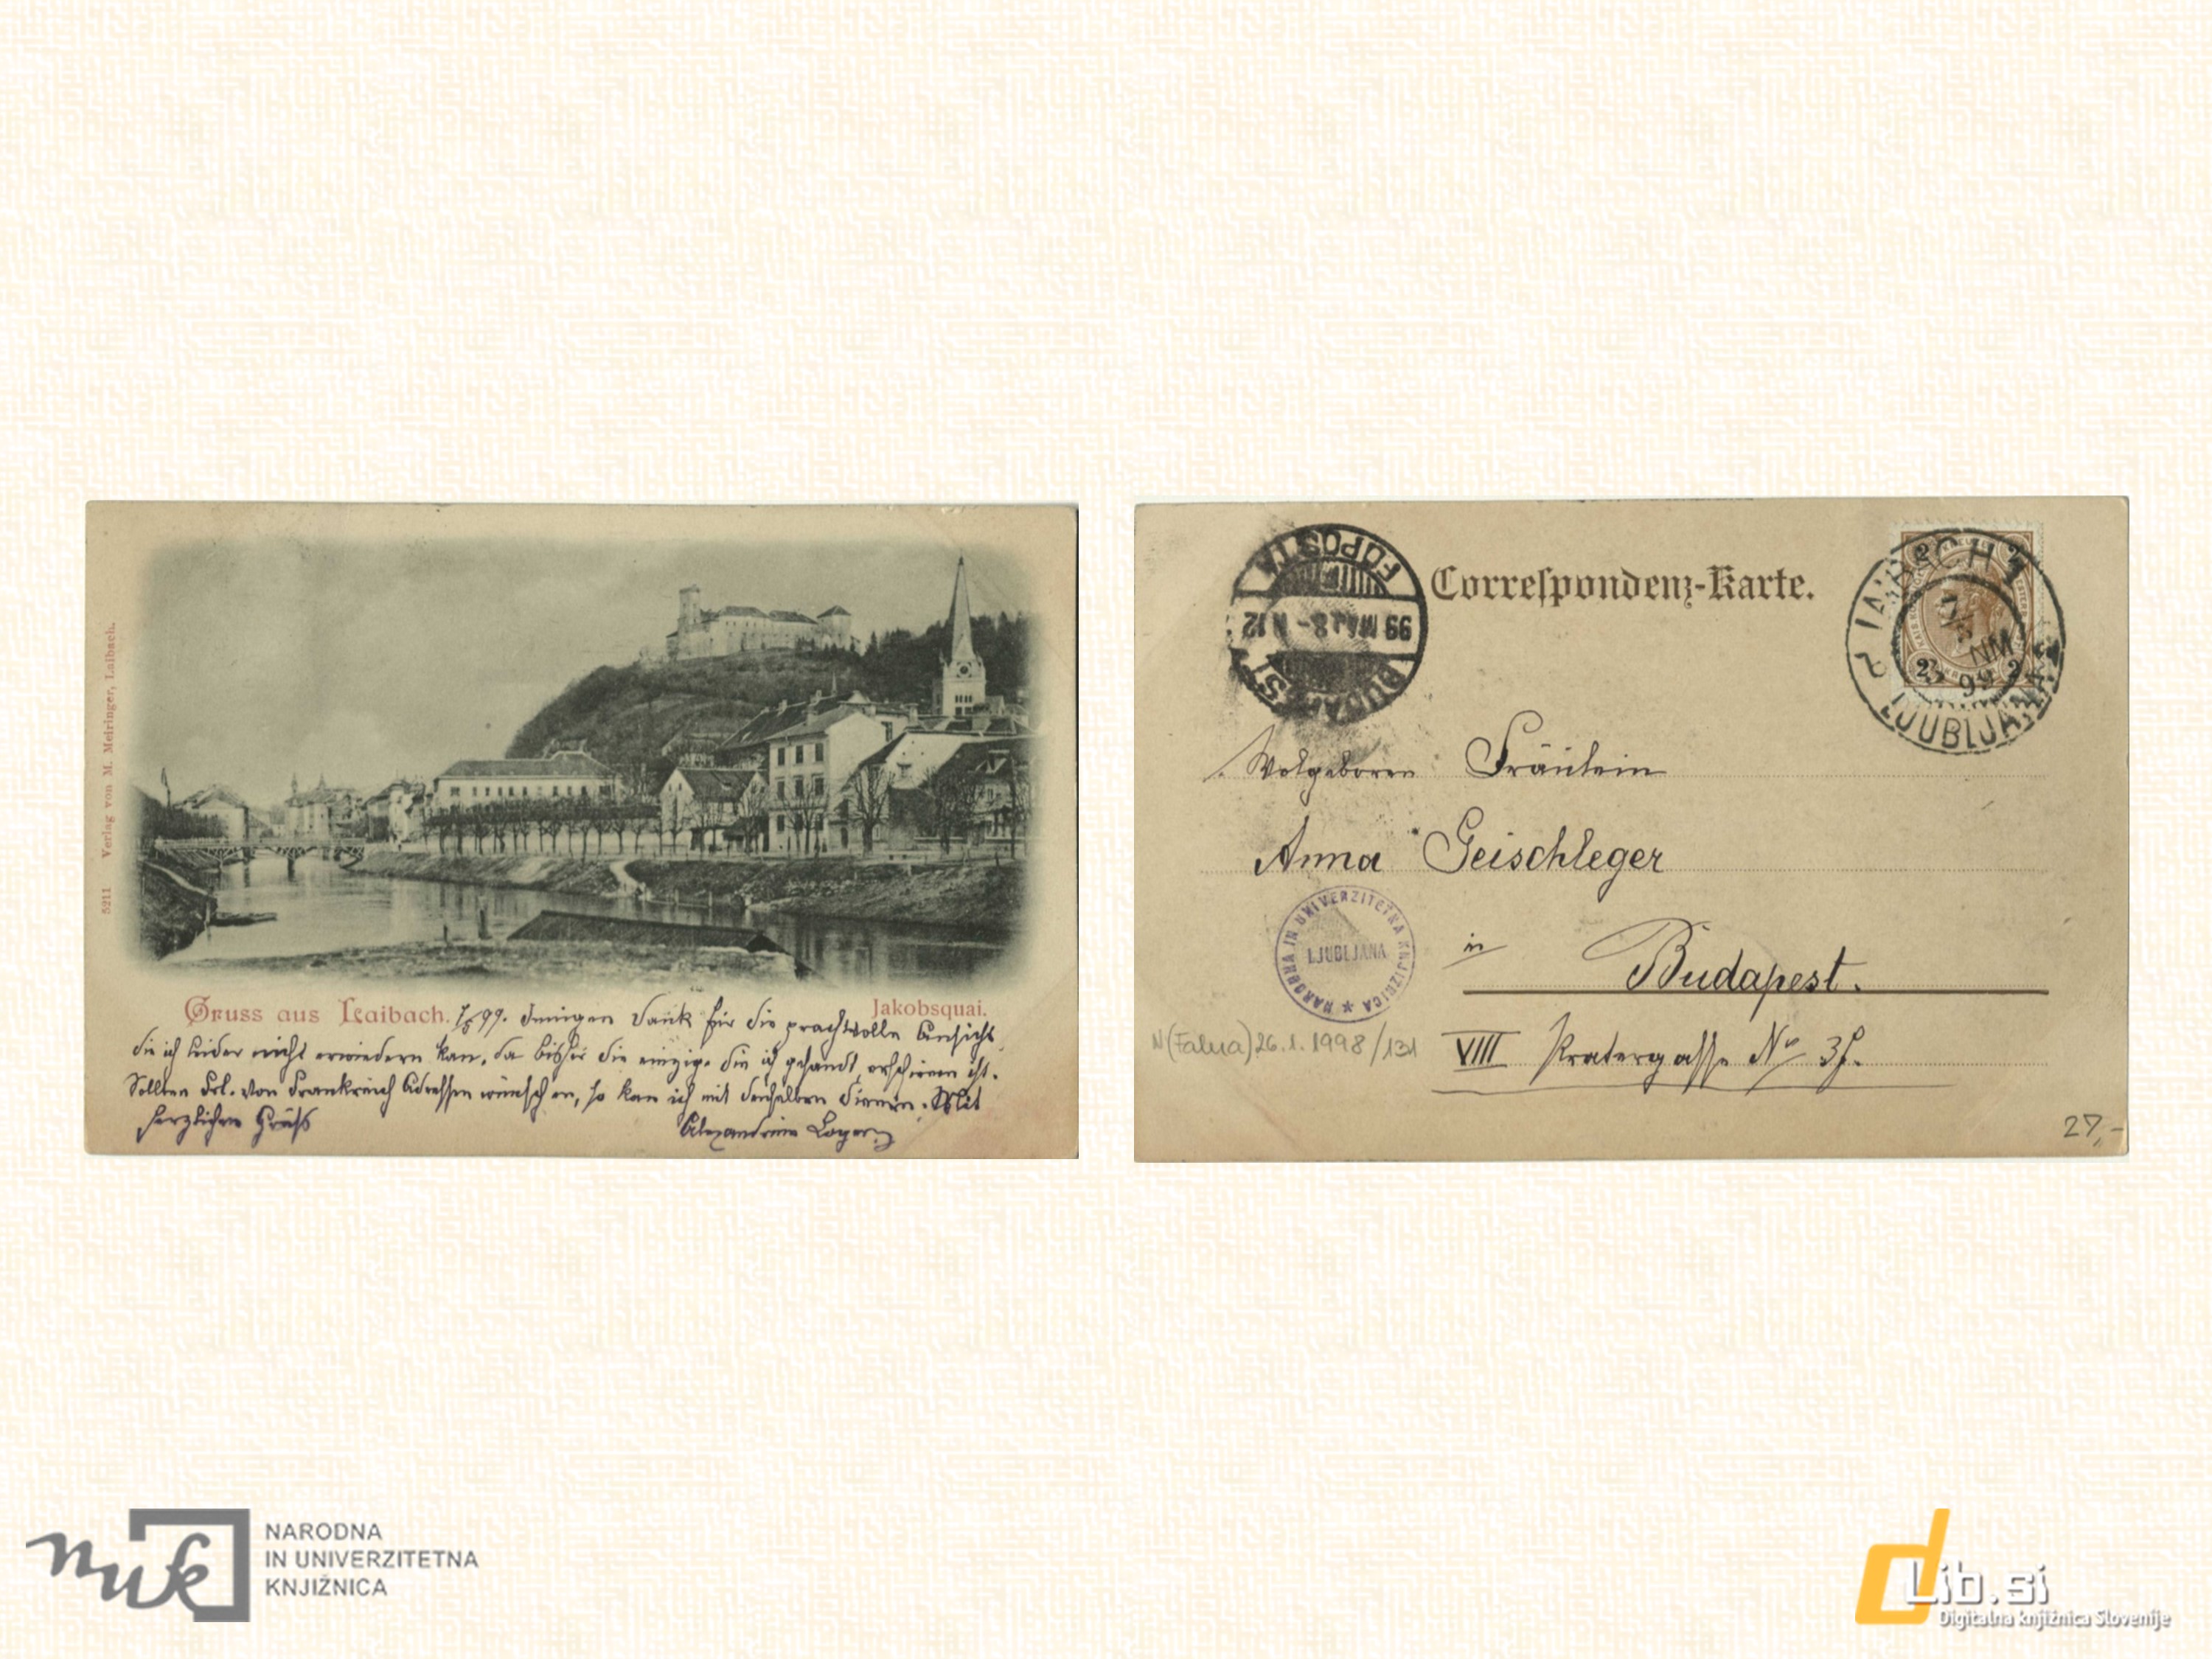 5211 Verlag von M. Meiringer, Laibach.
Gruss aus Laibach. 7/3 99. Innigen Dank für die prachtvolle Ansicht,
Jakobsquai.
die ich leider nicht erwiedern kan, da bisher die einzige die ich gesandt, erschienen ist.
Sollten Frl. von Frankreich Adressen wünschen, so kan ich mit denselben dienen. Mit
herzlichem Gruß
Alexandrine
Correspondenz-Karte.
BUDAPEST
99 MÁR 8 - N 12
FŐPOSTA
LAIBACH 1
7 3 NM
99
LJUBLJANA
Wolgeboren Fräulein
Anna Geischleger
in Budapest.
VIII Pratergasse No
NARODNA IN UNIVERZITETNA KNJIZNICA
LJUBLJANA
26.1.1998/131
27,-
nuk
NARODNA
IN UNIVERZITETNA
KNJIŽNICA
dLib.si
Digitalna knjižnica Slovenije